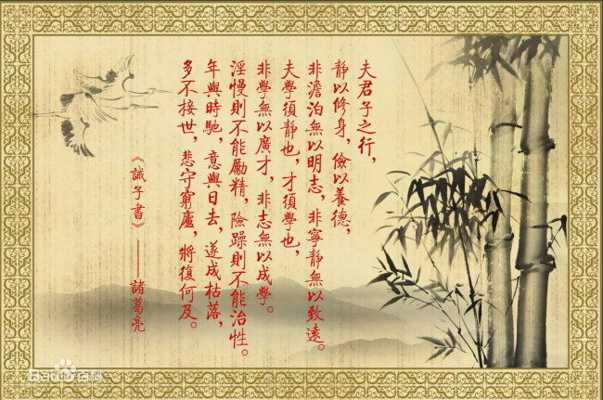 夫君子之行，
靜以修身，儉以養德，
非澹泊無以明志，非寧靜無以致遠。
夫學須靜也，才須學也，
非學無以廣才，非志無以成學。
淫慢則不能勵精，險躁則不能治性。
年與時馳，意與日去，遂成枯落，
多不接世，悲守窮廬，將復何及。
《誡子書》——諸葛亮
Baidu百科